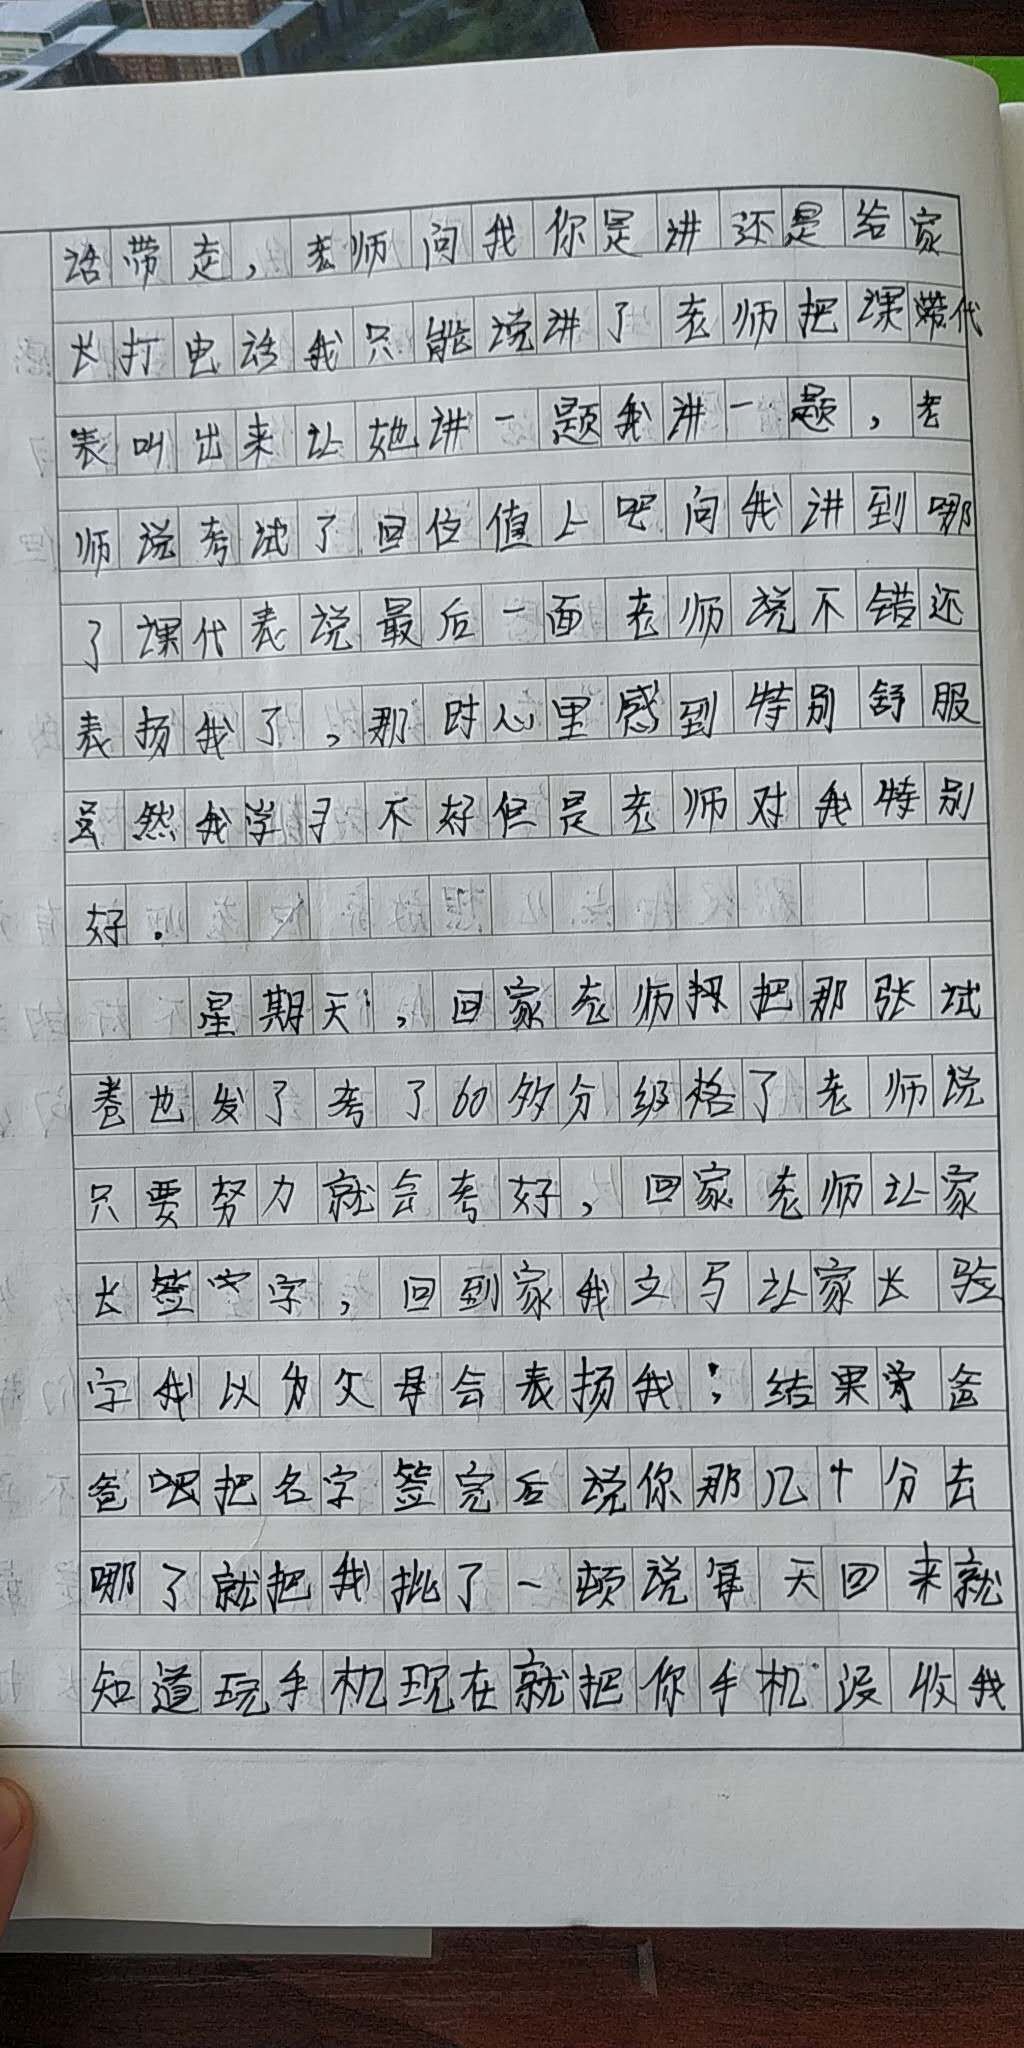 话带走，老师问我你是讲还是给家
长打电话我只能说讲了老师把课带代
表叫出来让她讲一题我讲一题，老
师说考试了回位值上吧问我讲到哪
了课代表说最后一面老师说不错还
表扬我了，那时心里感到特别舒服
虽然我学习不好但是老师对我特别
好.
星期天，回家老师把那张试
卷也发了考了60多分级格了老师说
只要努力就会考好，回家老师让家
长签字，回到家我立马让家长验
字我以为父母会表扬我；结果爸
爸吧把名字签完后说你那几十分去
哪了就把我批了一顿说每天回来就
知道玩手机现在就把你手机没收我